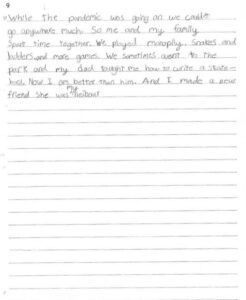 9
"While the pandemic was going on we could't
go anywhere much. So me and my family
Spent time together. We played monoploy, Snakes and
ladders and more games. We sometimes went to the
park and my dad taught me how to write a skate-
bord. Now I am better than him. And I made a new
friend She was my neibour